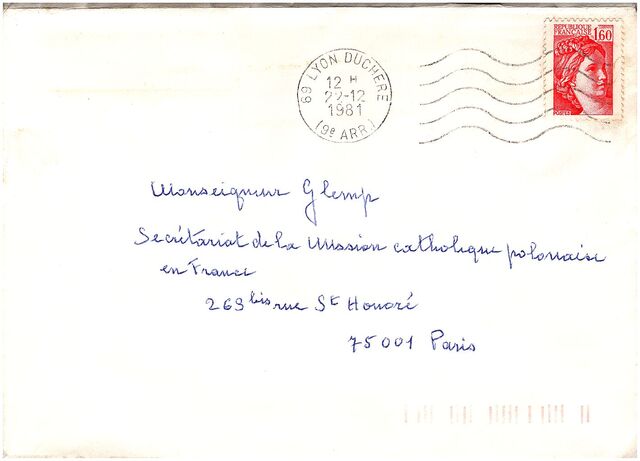 REPUBLIQUE
FRANÇAISE
1,60
69 LYON DUCHERE
12 H
22-12
1981
(9e ARR.)
Monseigneur Glemp
Secrétariat de la Mission catholique polonaise
en France
263 bis rue St Honoré
75001 Paris